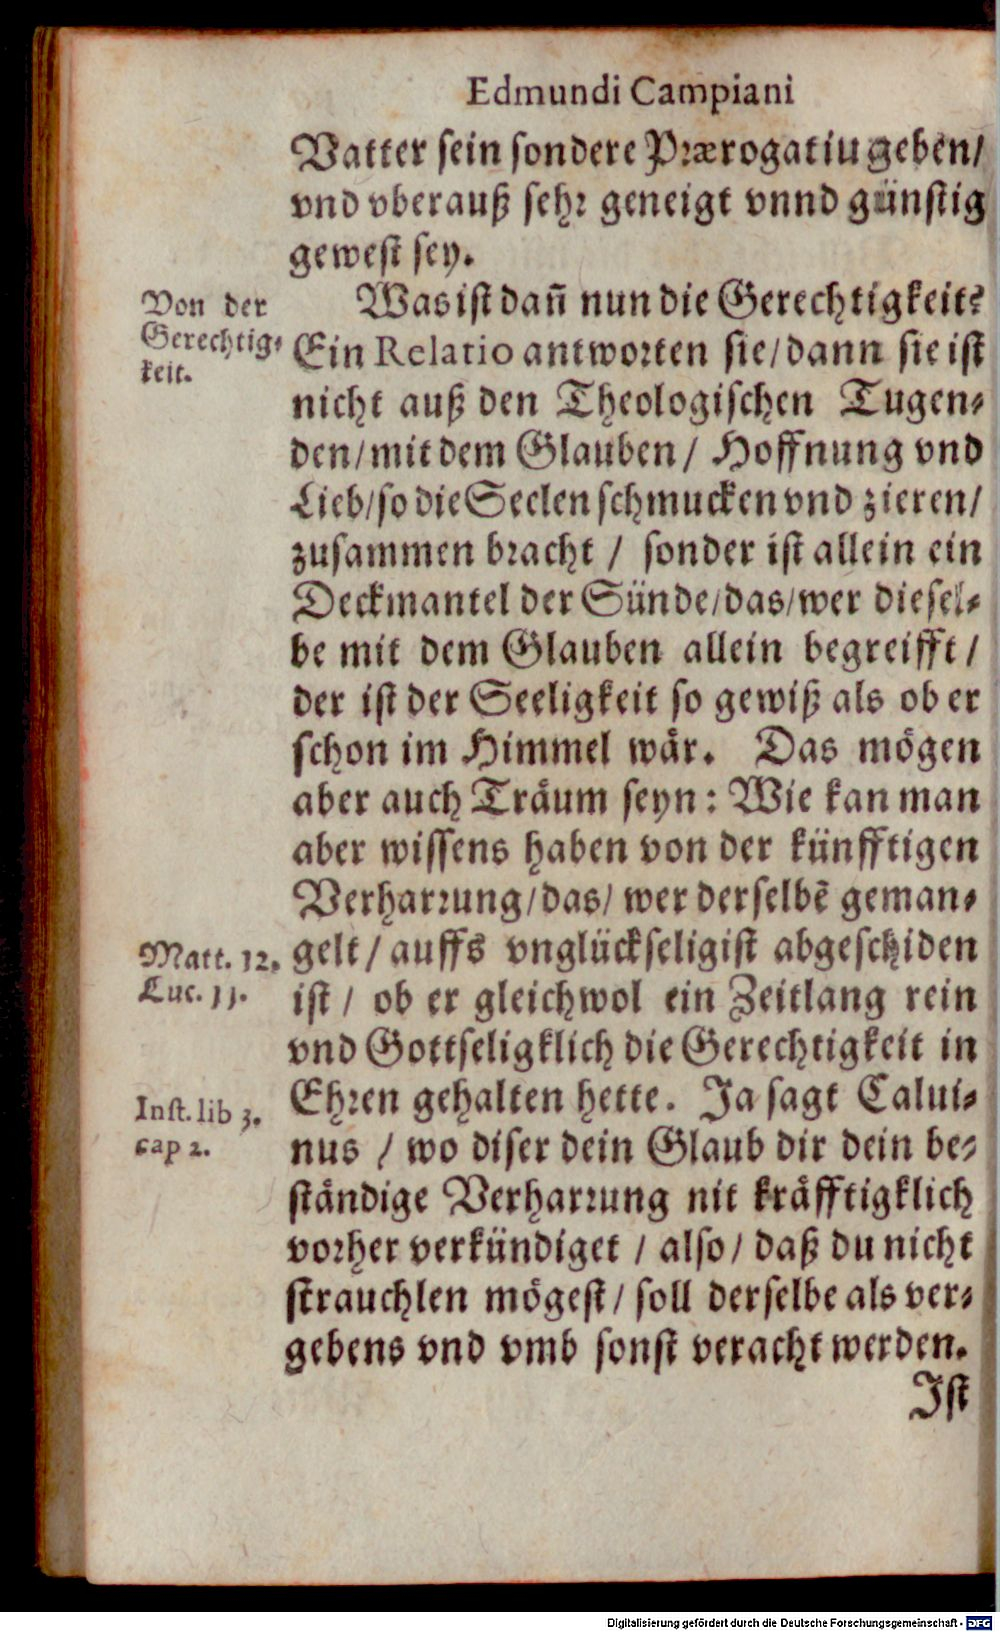 Edmundi Campiani
Vatter sein sondere Prærogatiu geben/
vnd vberauß sehr geneigt vnnd günstig
gewest sey.
Von der
Gerechtig-
keit.
Was ist dañ nun die Gerechtigkeit?
Ein Relatio antworten sie/dann sie ist
nicht auß den Theologischen Tugen-
den/mit dem Glauben/ Hoffnung vnd
Lieb/so die Seelen schmucken vnd zieren/
zusammen bracht / sonder ist allein ein
Deckmantel der Sünde/das/wer diesel-
be mit dem Glauben allein begreifft/
der ist der Seeligkeit so gewiß als ob er
schon im Himmel wär. Das mögen
aber auch Träum seyn: Wie kan man
aber wissens haben von der künfftigen
Verharrung/das/ wer derselbẽ geman-
Matt. 12.
Luc. 11.
gelt/ auffs vnglückseligist abgeschiden
ist/ ob er gleichwol ein Zeitlang rein
vnd Gottseligklich die Gerechtigkeit in
Inst. lib 3.
cap 2.
Ehren gehalten hette. Ja sagt Calui-
nus / wo diser dein Glaub dir dein be-
ständige Verharrung nit kräfftigklich
vorher verkündiget / also/ daß du nicht
strauchlen mögest/ soll derselbe als ver-
gebens vnd vmb sonst veracht werden.
Ist
Digitalisierung gefördert durch die Deutsche Forschungsgemeinschaft - DFG